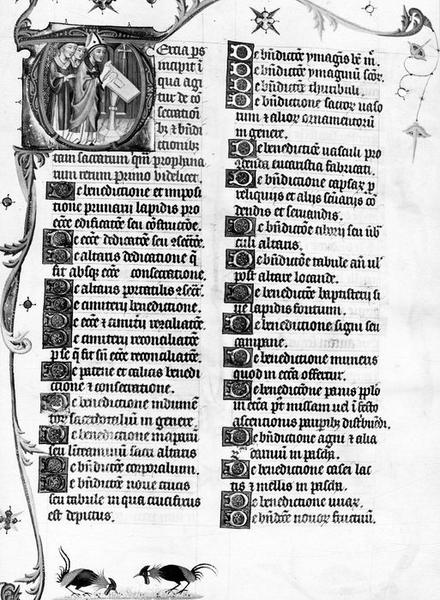 Tercia ps
incipit ī
qua agi
tur de cō
secratiōi
bȝ et bn̄di
ctionibȝ
tam sacrarum qm̄ prophana
rum rerum primo videlicet.
De benedictione et imposi
tione primarii lapidis pro
ecc̄e edificatōe seu cōstructōe.
De ecc̄e dedicatōe seu cōsecr̄tōe.
De altaris dedicatione q̄
fit absqȝ ecc̄e consecratione.
De altaris portatilis cōsecr̄.
De cimiterij benedictione.
De ecc̄e et cimit̄ij recōciliatōe.
De cimiterij reconciliatōe
p se q̄ fit sn̄ ecc̄e reconciliatōe.
De patene et calicis benedi
ctione et consecratione.
De benedictione indumē
torȝ sacerdotalium in genere.
De benedictione mapparū
seu lītheaminū sacri altaris
De bn̄dictōe corporalium.
De bn̄dictōe noue crucis
seu tabule in qua crucifixus
est depictus.
De bn̄dictōe ymagīs bt̄e m̄.
De bn̄dictōe ymaginū sc̄orȝ.
De bn̄dictōe thuribuli.
De bn̄dictione sacrorȝ vaso
rum et aliorȝ ornamentorū
in genere.
De benedictōe vasculi pro
eucaristia fabricati.
De bn̄dictione capsarȝ p
reliquijs et alijs sc̄uarijs cō
dendis et seruandis.
De bn̄dictōe
culi altaris.
De bn̄dictōe tabule an̄ ul̄
post altare locande.
De benedictōe baptisterij si
ue lapidis fontium.
De benedictione signi seu
campane.
De benedictione muneris
quod in ecc̄a offertur.
De benedictōne panis pp̄lo
in ecc̄a pꝰ missam uel ī festo
ascensionis paupibȝ distribuēdi.
De bn̄dictione agni et alia
rȝ carniū in pascha.
De benedictione casei lac
tis et mellis in pascha.
De benedictione vuarȝ.
De bn̄dctōe nouorȝ fructuū.